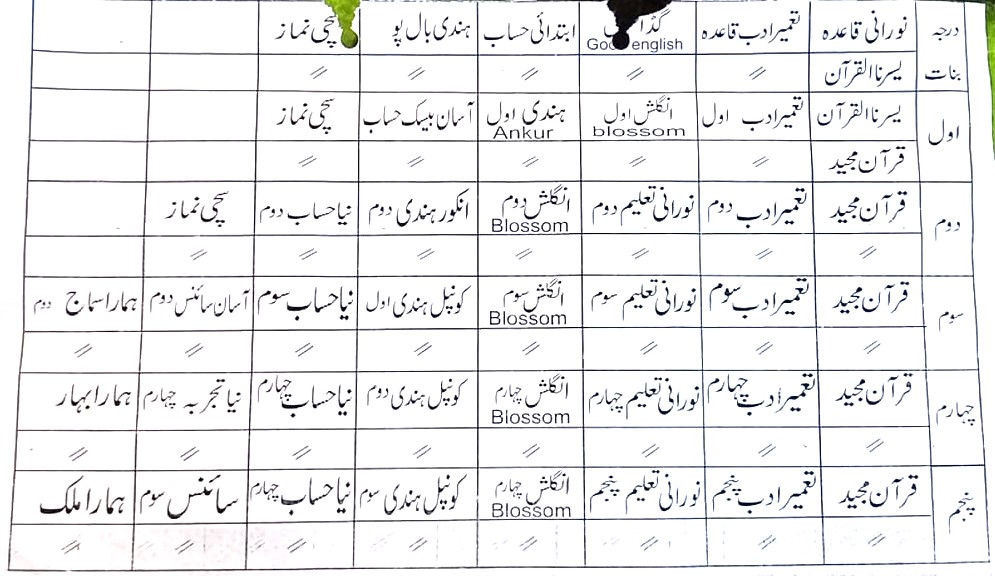 درجہ نورانی قاعدہ تعمیر ادب قاعدہ گڈ Good english ابتدائی حساب ہندی بال پو سچی نماز
بنات یسرنا القرآن 〃 〃 〃 〃 〃
اول یسرنا القرآن تعمیر ادب اول انگلش اول blossom ہندی اول Ankur آسان بیسک حساب سچی نماز
قرآن مجید 〃 〃 〃 〃 〃
دوم قرآن مجید تعمیر ادب دوم نورانی تعلیم دوم انگلش دوم Blossom انکور ہندی دوم نیا حساب دوم سچی نماز
〃 〃 〃 〃 〃 〃 〃
سوم قرآن مجید تعمیر ادب سوم نورانی تعلیم سوم انگلش سوم Blossom کونپل ہندی اول نیا حساب سوم آسان سائنس دوم ہمارا سماج دوم
〃 〃 〃 〃 〃 〃 〃 〃
چہارم قرآن مجید تعمیر ادب چہارم نورانی تعلیم چہارم انگلش چہارم Blossom کونپل ہندی دوم نیا حساب چہارم نیا تجربہ چہارم ہمارا بہار
〃 〃 〃 〃 〃 〃 〃 〃
پنجم قرآن مجید تعمیر ادب پنجم نورانی تعلیم پنجم انگلش چہارم Blossom کونپل ہندی سوم نیا حساب چہارم سائنس سوم ہمارا ملک
〃 〃 〃 〃 〃 〃 〃 〃